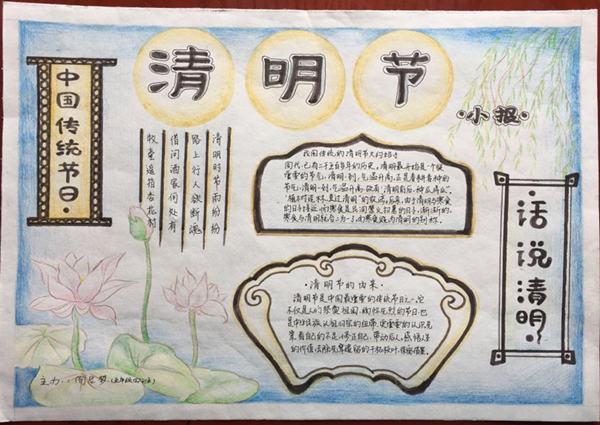 清明节
·小报·
中国传统节日·
清明时节雨纷纷
路上行人欲断魂
借问酒家何处有
牧童遥指杏花村
我国传统的清明节大约始于
周代,已有二千五百多年的历史。清明最开始是一个很
重要的节气,清明一到,气温升高,正是春耕春种的
节气,清明一到,气温升高,故有"清明前后,种瓜种豆"。
"植树造林,莫过清明"的农谚。后来,由于清明与寒食
的日子接近,而寒食是民间禁火扫墓的日子,渐渐的,
寒食与清明就合二为一了,而寒食既为清明的别称
·清明节的由来·
清明节是中国最重要的传统节日之一。它
不仅是人们祭奠祖国
的节日,也
是中华民族认祖归宗的纽带
·话说清明·